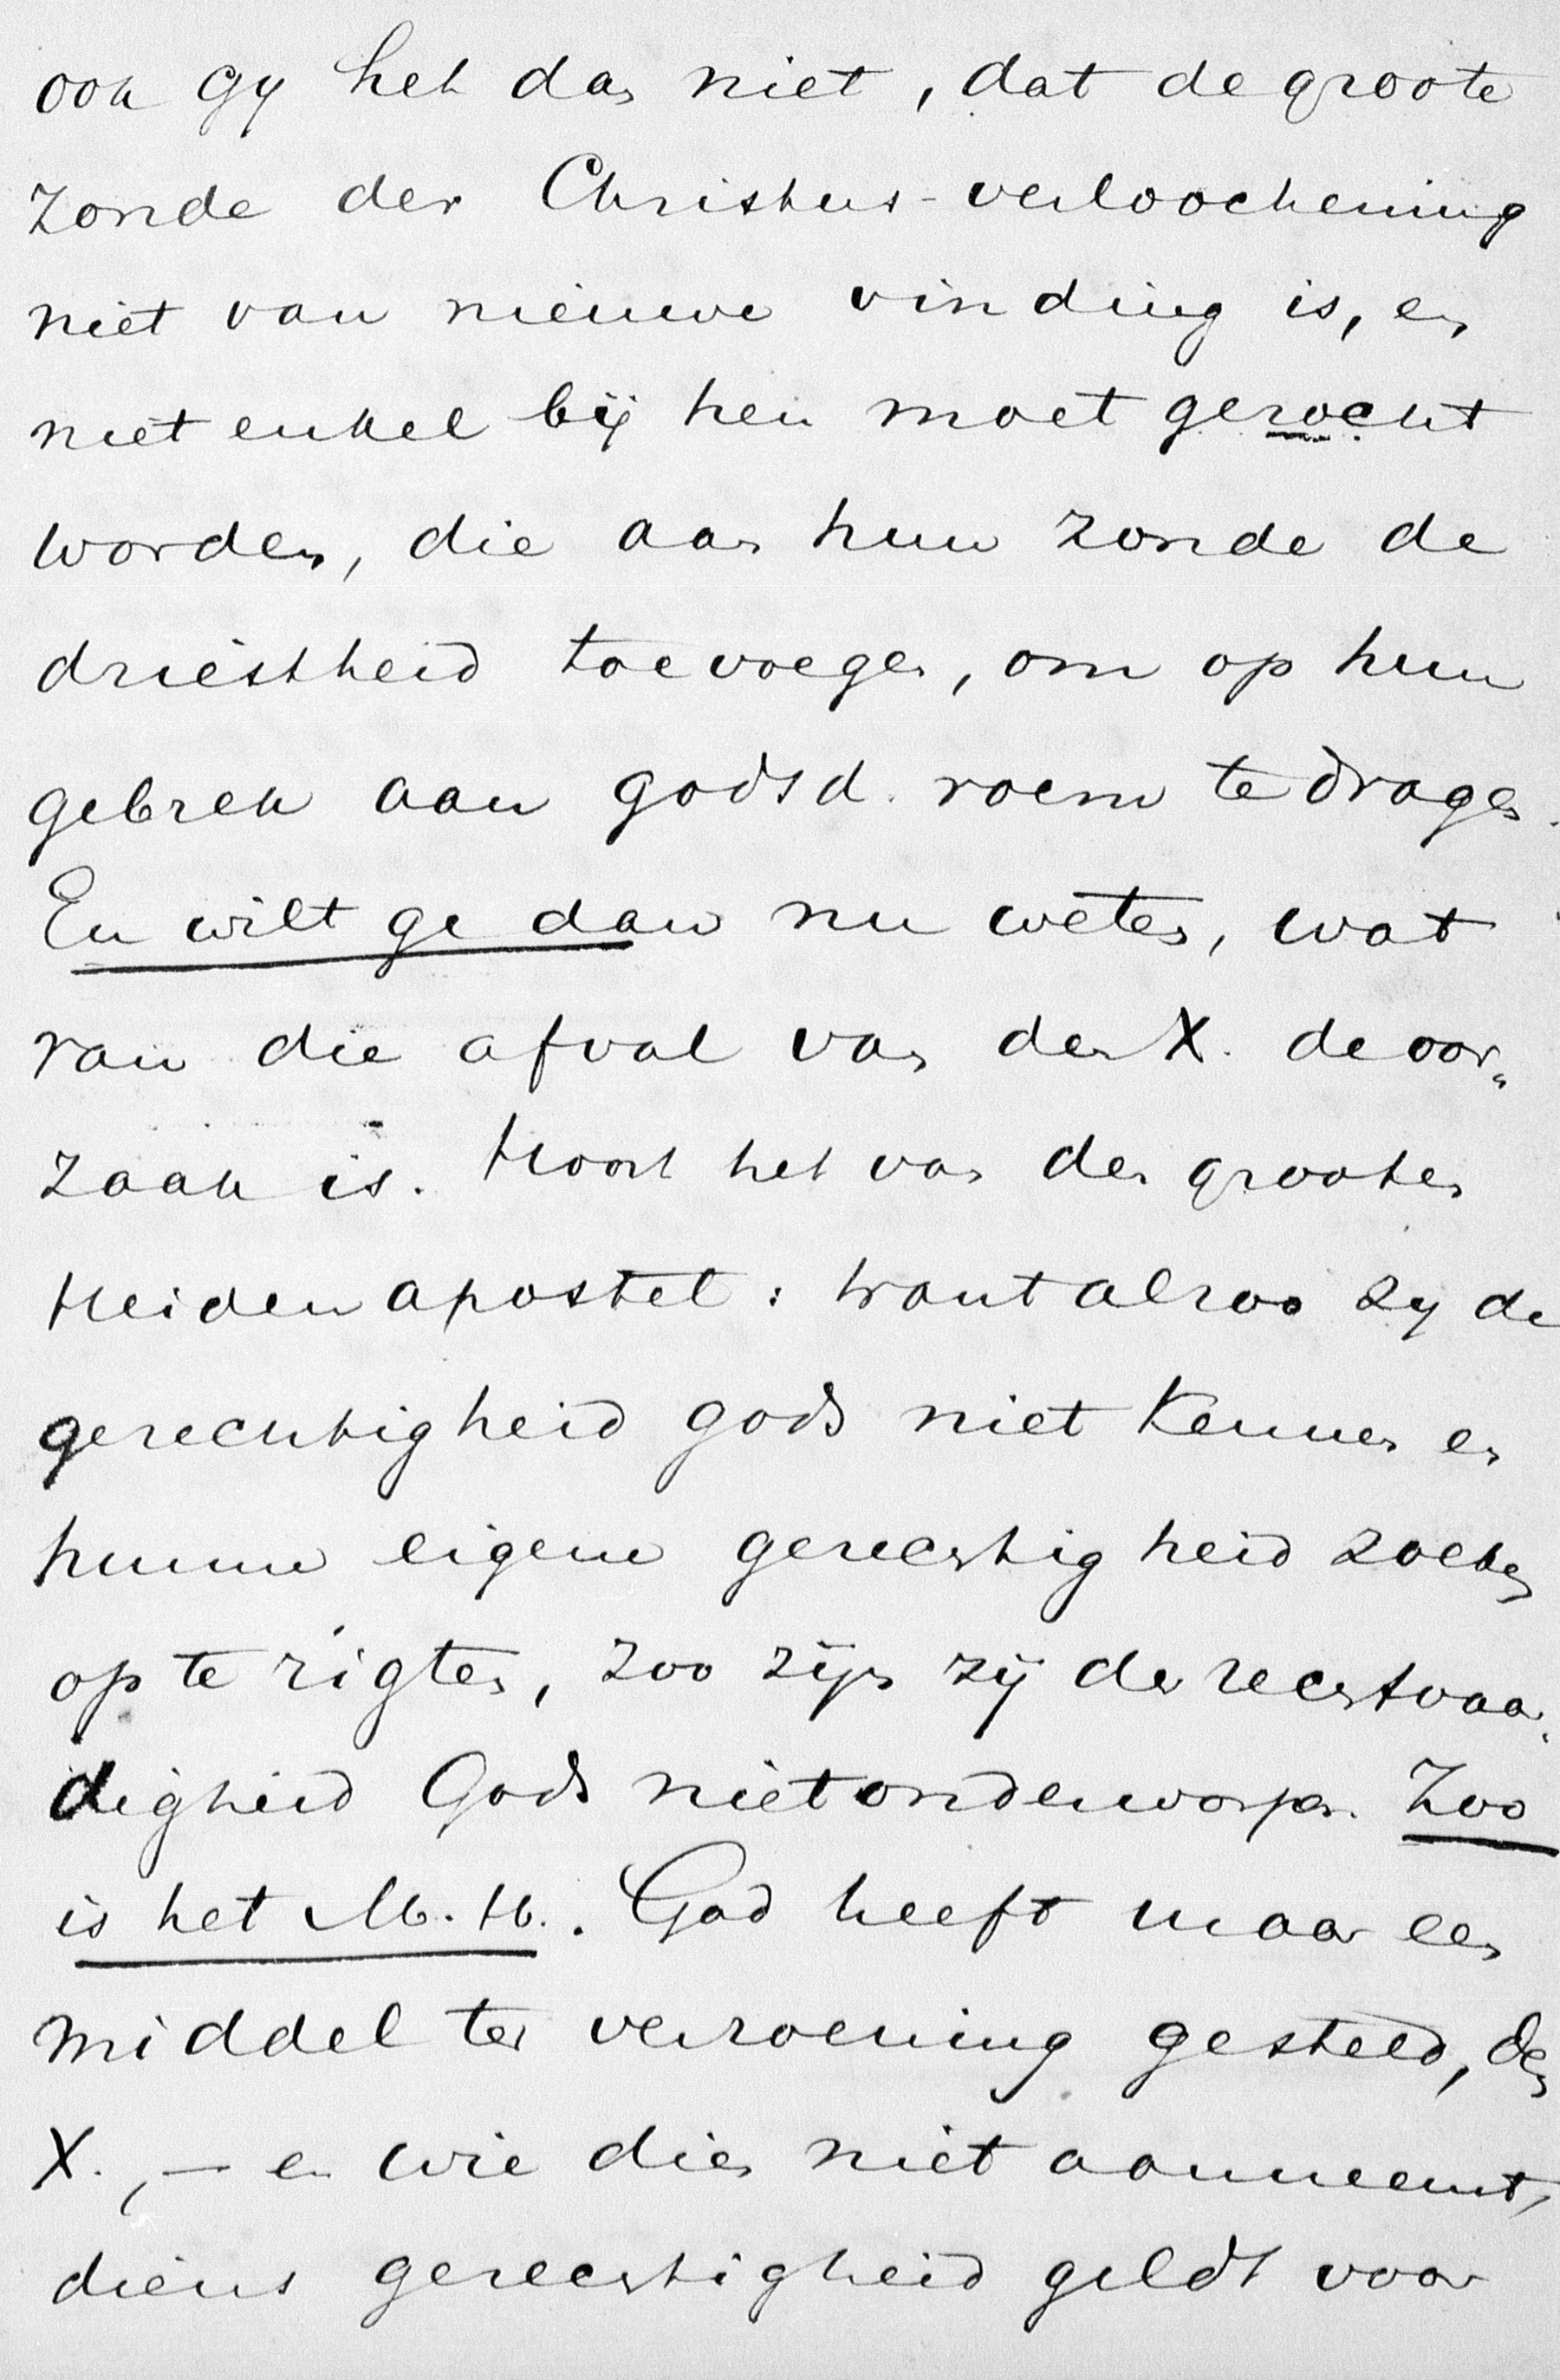 ook gy het dan niet, dat de groote
zonde der Christus-verloochening
niet van nieuwe vinding is, en
niet enkel bij hen moet gezocht
worden, die aan hun zonde de
driestheid toevoegen, om op hun
gebrek aan godsd. roem te dragen.
En wilt ge dan nu weten, wat
van die afval van den X. de oor„
zaak is. Hoort het van den grooten
Heidenapostel: want alzoo zy de
gerechtigheid gods niet kennen en
hunne eigene gerechtigheid zoeken
op te rigten, zoo zijn zij der rechtvaar„
digheid Gods niet onderworpen. Zoo
is het M. H.. God heeft maar een
middel ter verzoening gesteld, den
X., — en wie dien niet aanneemt,
diens gerechtigheid geldt voor